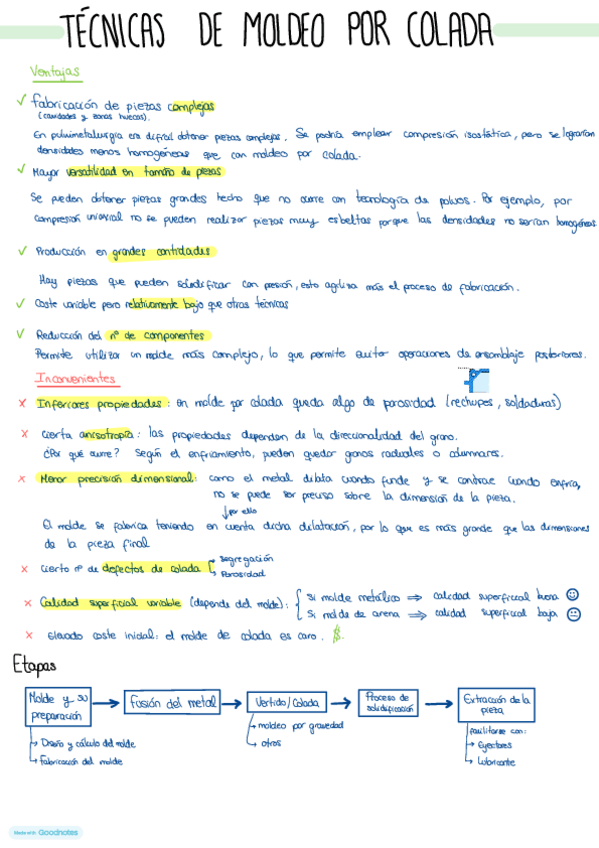 TÉCNICAS DE MOLDEO POR COLADA
Ventajas
✓ Fabricación de piezas complejas
(cavidades y zonas huecas).
En pulvimetalurgia era difícil obtener piezas complejas. Se podría emplear compresión isostática, pero se lograrían
densidades menos homogéneas que con moldeo por colada.
✓ Mayor versatilidad en tamaño de piezas
Se pueden obtener piezas grandes hecho que no ocurre con tecnología de polvos. Por ejemplo, por
compresión uniaxial no se pueden realizar piezas muy esbeltas porque las densidades no serían homogéneas
✓ Producción en grandes cantidades
Hay piezas que pueden solidificar con presión, esto agiliza más el proceso de fabricación.
✓ Coste variable pero relativamente bajo que otras técnicas
✓ Reducción del nº de componentes
Permite utilizar un molde más complejo, lo que permite evitar operaciones de ensamblaje posteriores.
Inconvenientes
✗ Inferiores propiedades: en molde por colada queda algo de porosidad (rechupes, soldaduras)
✗ Cierta anisotropía: las propiedades dependen de la direccionalidad del grano.
¿Por qué ocurre? Según el enfriamiento, pueden quedar granos radiales o columnares.
✗ Menor precisión dimensional: como el metal dilata cuando funde y se contrae cuando enfría,
no se puede ser preciso sobre la dimensión de la pieza.
↓ por ello
El molde se fabrica teniendo en cuenta dicha dilatación, por lo que es más grande que las dimensiones
de la pieza final
✗ Cierto nº de defectos de colada
segregación
Porosidad
✗ Calidad superficial variable (depende del molde):
Si molde metálico ⇒ calidad superficial buena
Si molde de arena ⇒ calidad superficial baja
✗ Elevado coste inicial: el molde de colada es caro. $.
Etapas
Molde y su
preparación
→ Diseño y cálculo del molde
→ Fabricación del molde
Fusión del metal
Vertido/Colada
→ moldeo por gravedad
→ otros
Proceso de
solidificación
Extracción de la
pieza
facilitarse con:
→ Eyectores
→ Lubricante
Made with Goodnotes